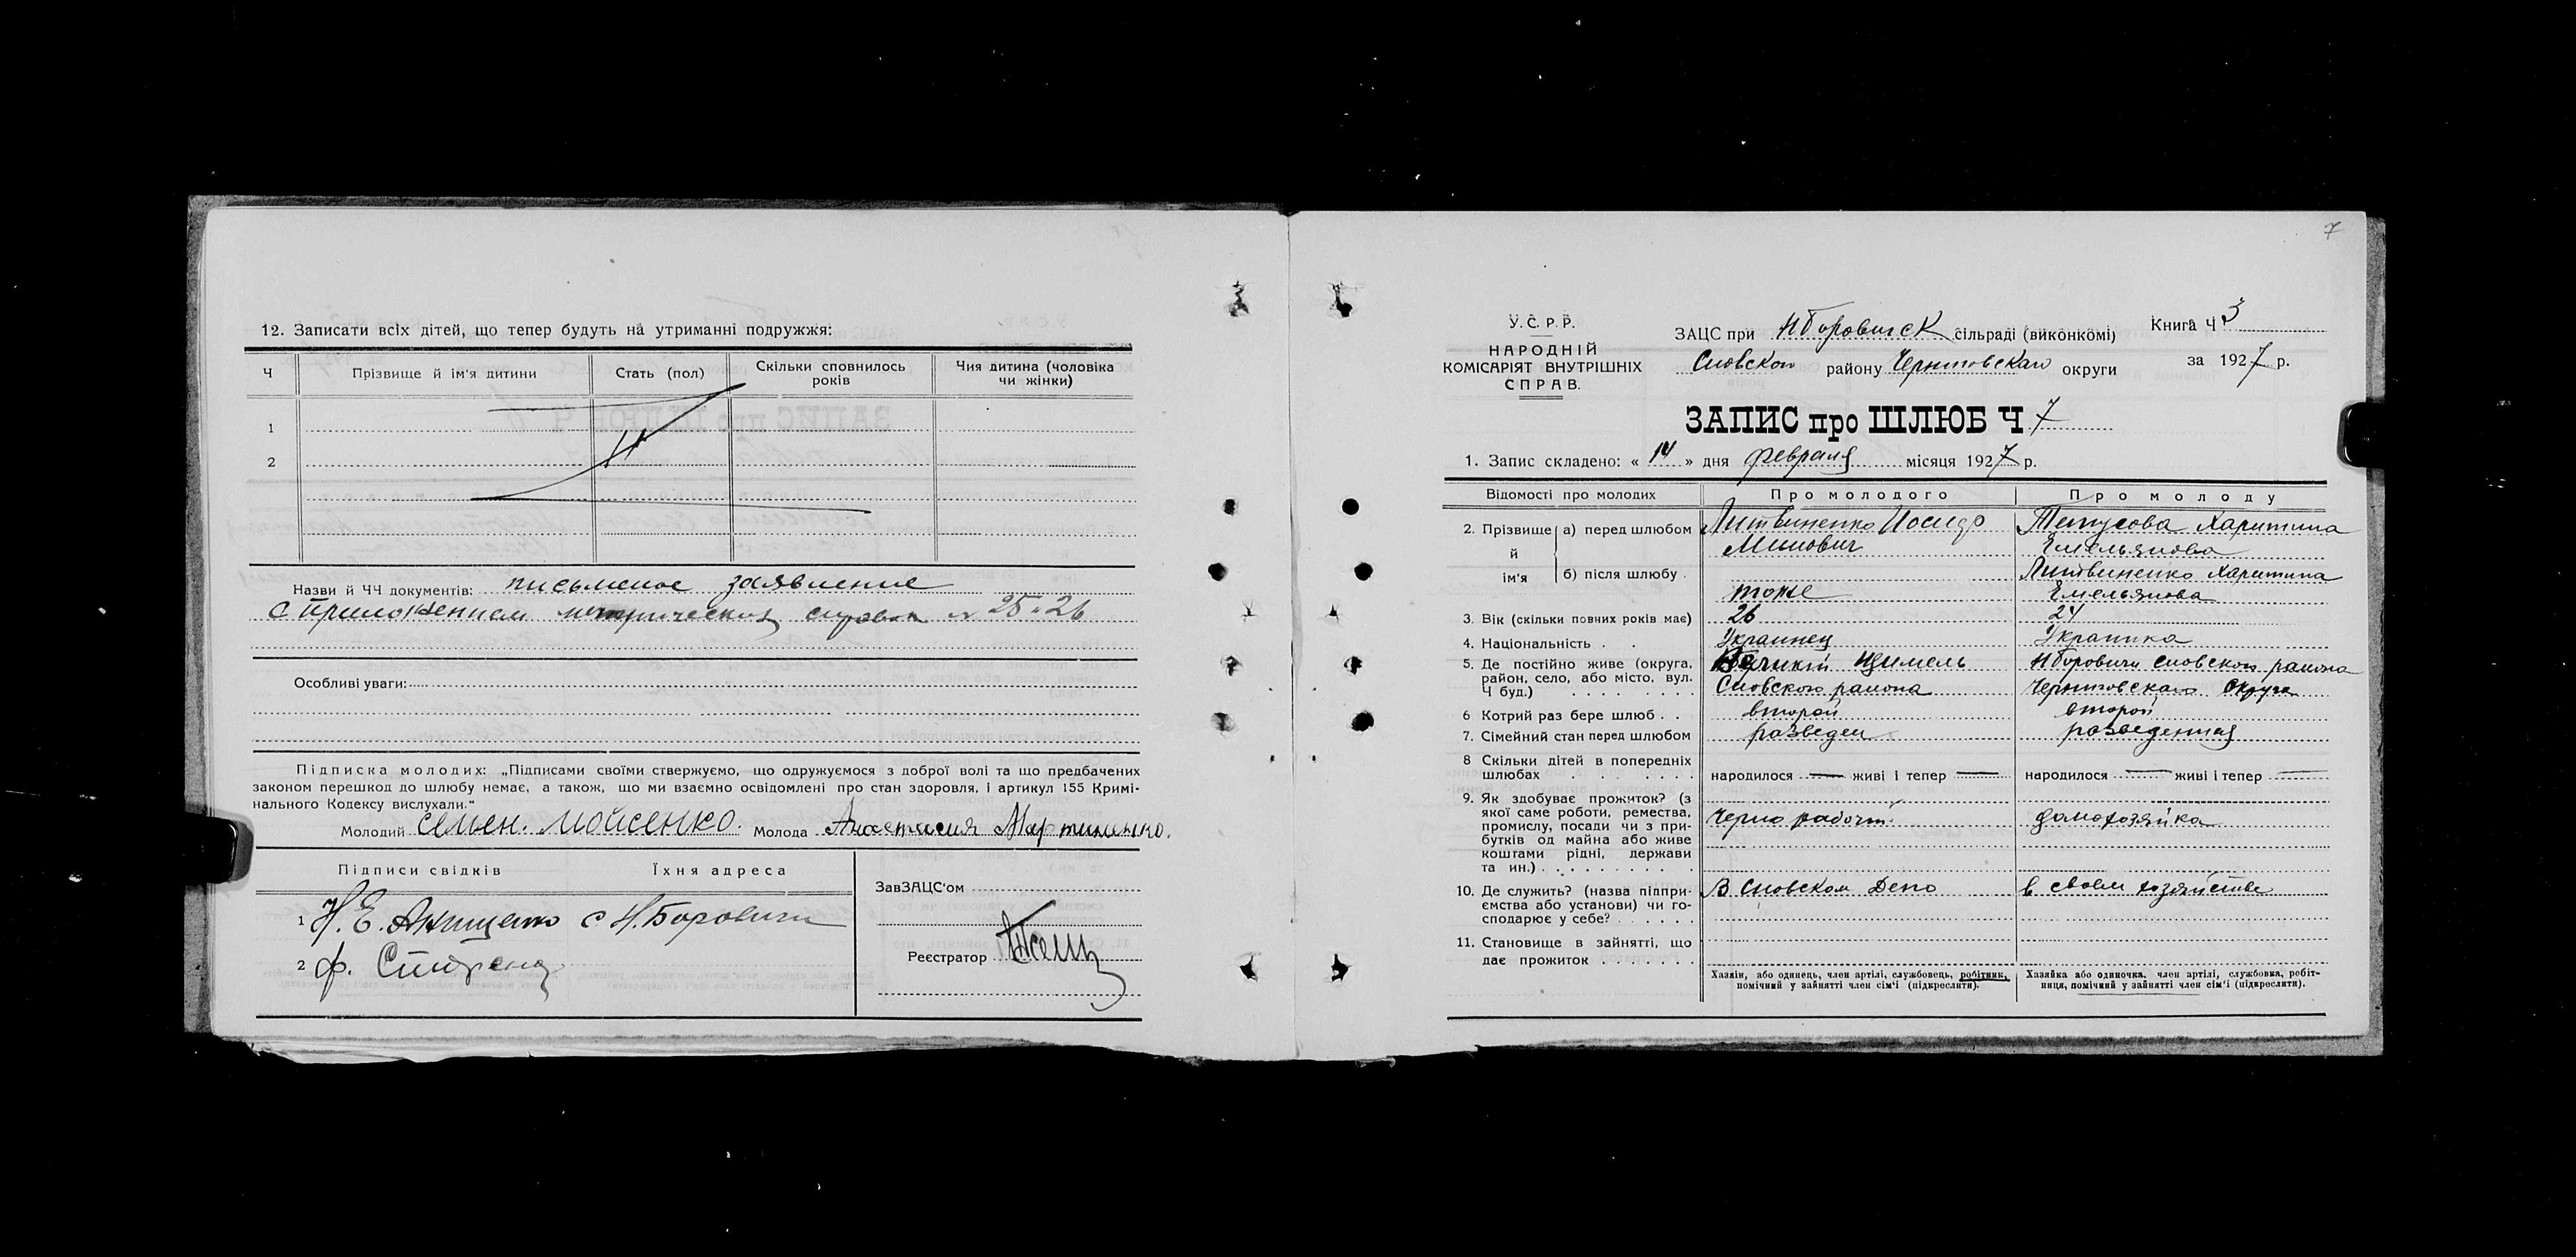 12. Записати всіх дітей, що тепер будуть на утриманні подружжя:
Ч Прізвище й ім'я дитини Стать (пол) Скільки сповнилось років Чия дитина (чоловіка чи жінки)
1
2
Назви й ЧЧ документів: письменое заявление
с приложением метрических справок № 25 и 26
Особливі уваги:
Підписка молодих: „Підписами своїми стверджуємо, що одружуємося з доброї волі та що предбачених
законом перешкод до шлюбу немає, а також, що ми взаємно освідомлені про стан здоровля, і артикул 155 Кримі-
нального Кодексу вислухали."
Молодий семен. мойсенко. Молода Анастасия Мартиненко.
Підписи свідків Їхня адреса
1 Н. Е. Анищенко с Н. Боровичи
2 ф.
ЗавЗАЦС'ом
Реєстратор
7
У.С.Р.Р.
НАРОДНІЙ
КОМІСАРІЯТ ВНУТРІШНІХ
СПРАВ.
ЗАЦС при НБоровичск сільраді (виконкомі)
Сновского району Черниговского округи
Книга Ч 3
за 1927 р.
ЗАПИС про ШЛЮБ Ч 7
1. Запис складено: « 14 » дня февраля місяця 1927 р.
Відомості про молодих Про молодого Про молоду
2. Прізвище й ім'я а) перед шлюбом Литвиненко Минович Харитина Емельянова
б) після шлюбу тоже Литвиненко Харитина Емельянова
3. Вік (скільки повних років має) 26 24
4. Національність . . Украинец Украинка
5. Де постійно живе (округа,
район, село, або місто, вул.
Ч буд.) Великий Щимель Сновского района НБоровичи Сновского района Черниговского Округа
6 Котрий раз бере шлюб . . второй второй
7. Сімейний стан перед шлюбом разведен разведенная
8 Скільки дітей в попередніх
шлюбах народилося — живі і тепер — народилося — живі і тепер —
9. Як здобуває прожиток? (з
якої саме роботи, ремества,
промислу, посади чи з при-
бутків од майна або живе
коштами рідні, держави
та ин.) Черно рабочий домохозяйка
10. Де служить? (назва піппри-
ємства або установи) чи го-
сподарює у себе? В Сновском Депо в своем хозяйстве
11. Становище в зайнятті, що
дає прожиток
Хазяїн, або одинець, член артілі, службовець, робітник,
помічний у зайнятті член сім'ї (підкреслити).
Хазяйка або одиночка, член артілі, службовка, робіт-
ниця, помічний у зайнятті член сім'ї (підкреслити).